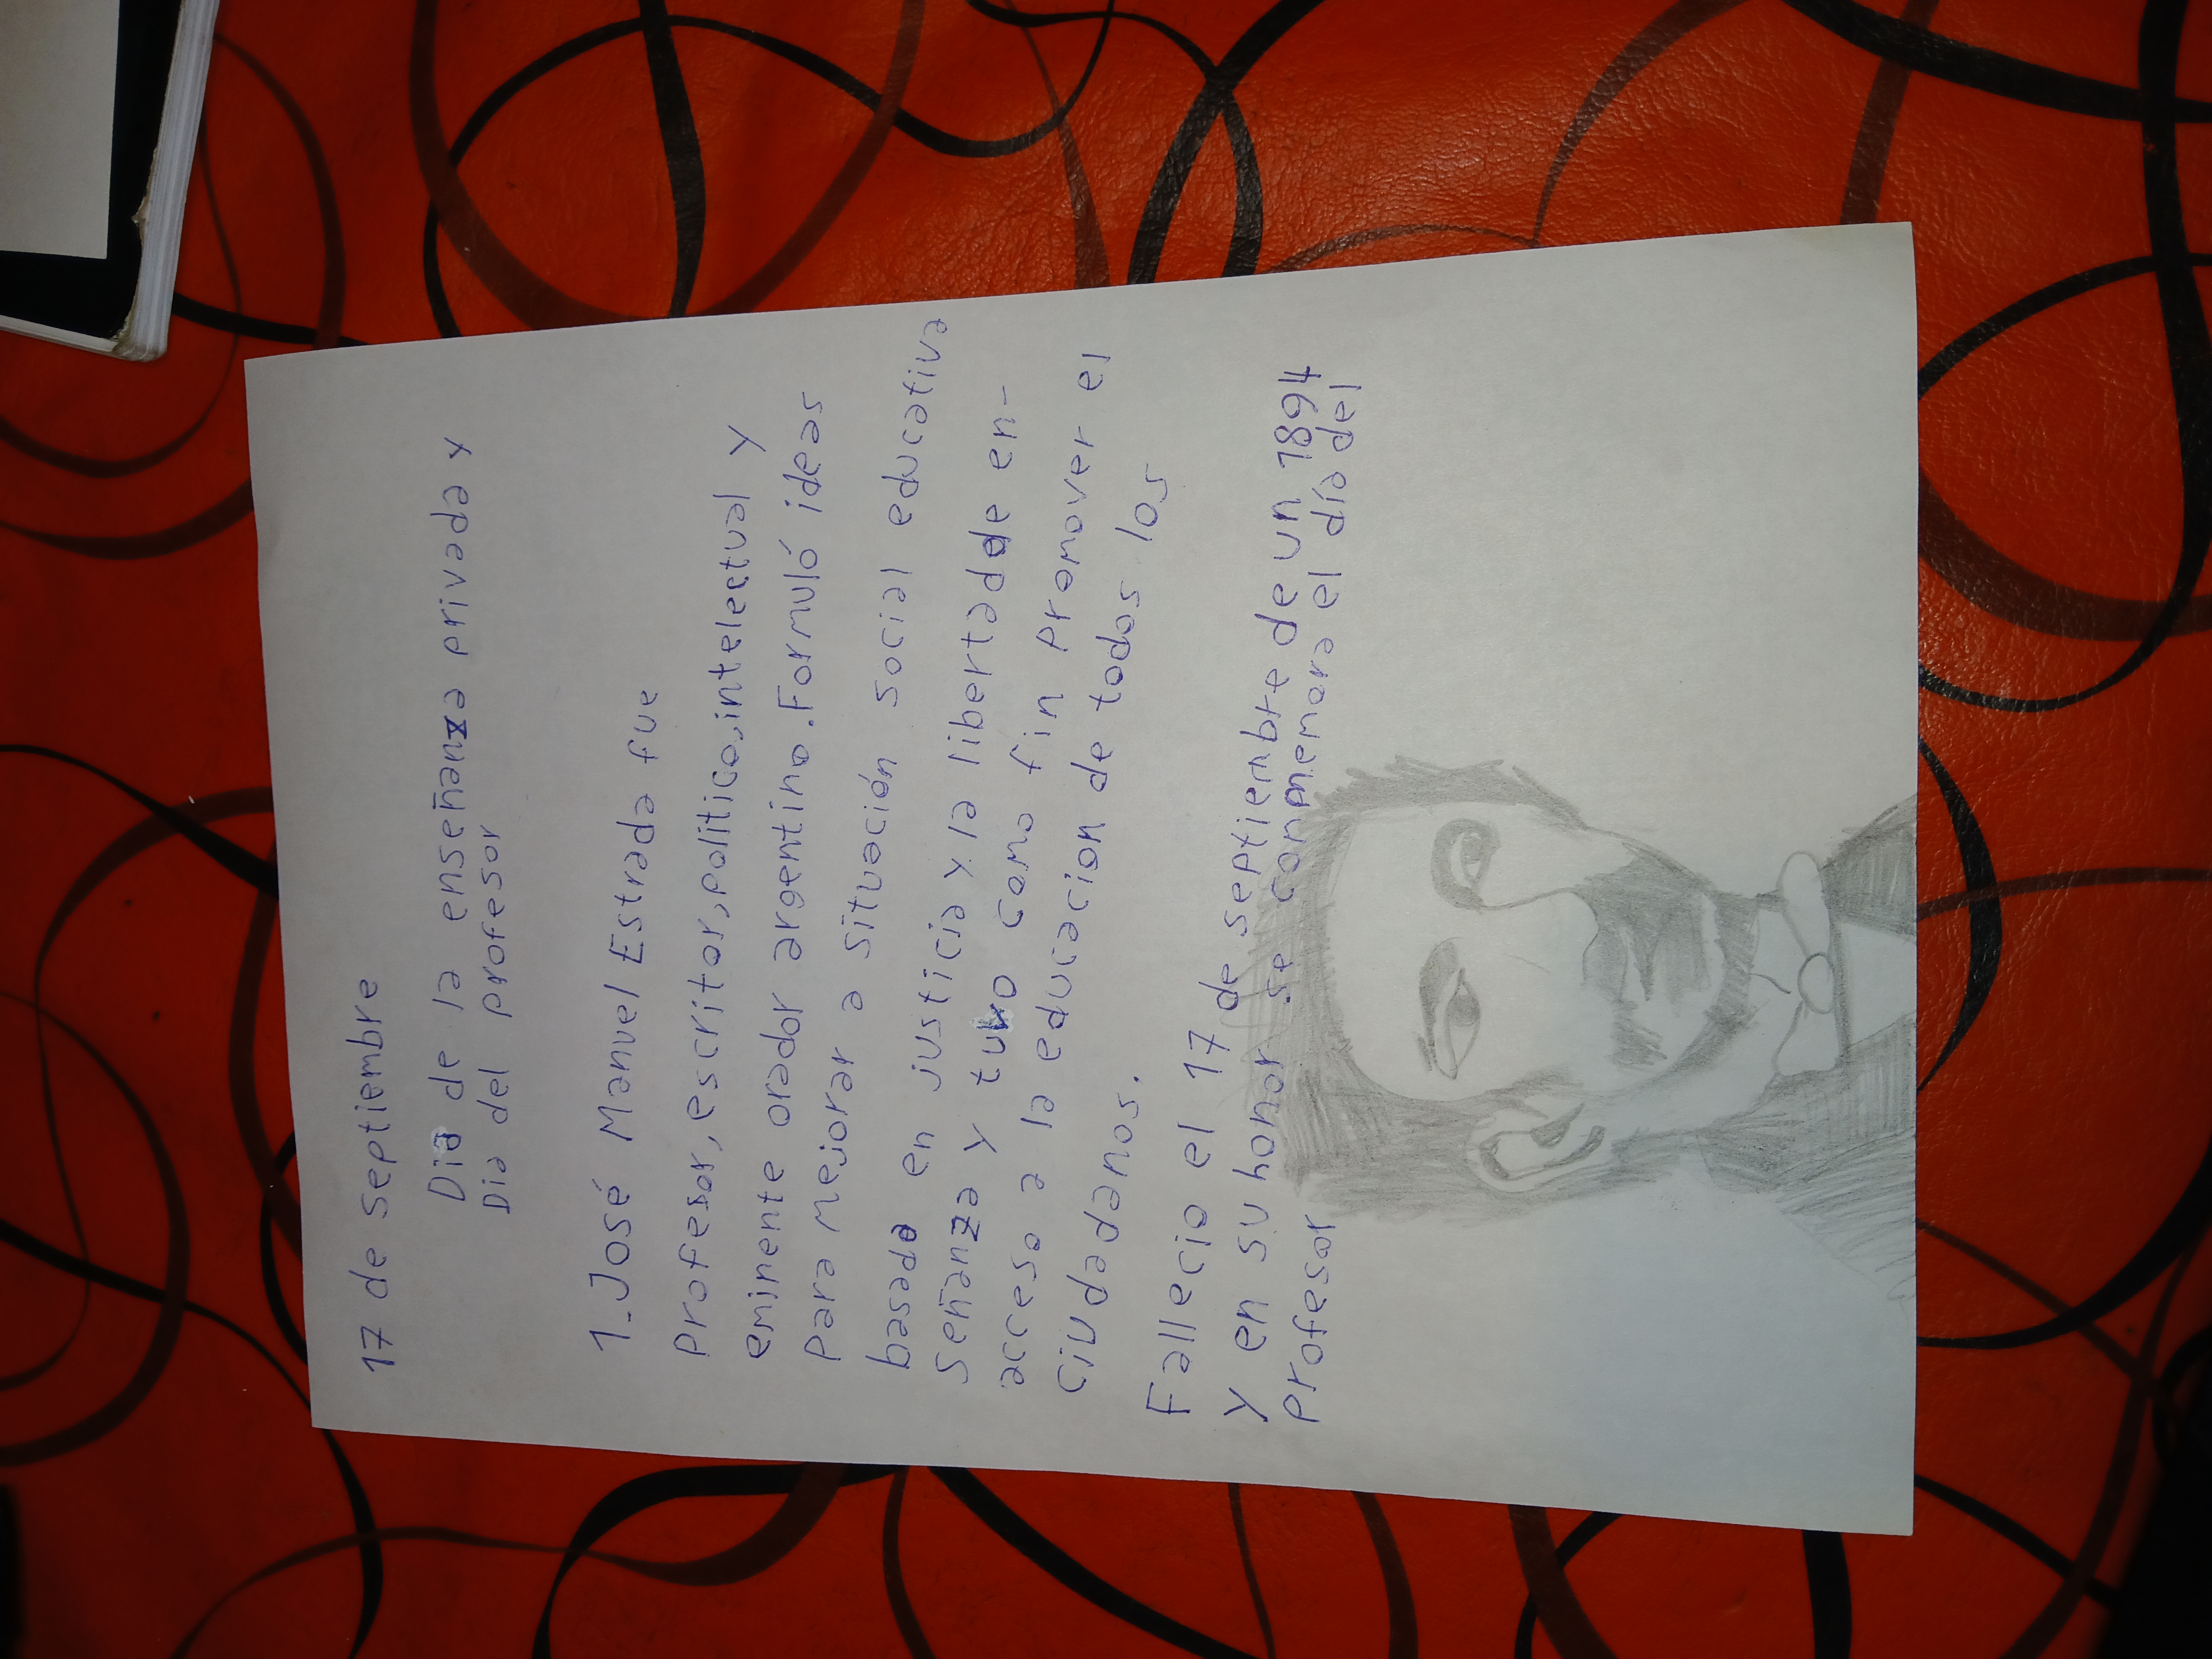 17 de septiembre
Dia de la enseñanza privada y
Dia del profesor
1-José Manuel Estrada fue
profesor, escritor, político, intelectual y
eminente orador argentino. Formuló ideas
para mejorar a situación social educativa
basado en justicia y la libertad de en-
señanza y tuvo como fin promover el
acceso a la educacion de todos los
ciudadanos.
Fallecio el 17 de septiembre de un 1894
y en su honor se conmemora el día del
profesor